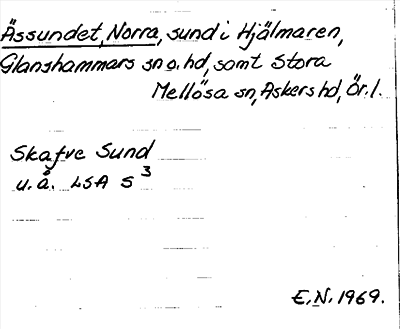 Ässundet, Norra, sund i Hjälmaren,
Glanshammars sn o. hd, samt Stora
Mellösa sn, Askers hd, Ör. l.
Skafve Sund
u.å. LSA S 3
E.N. 1969.